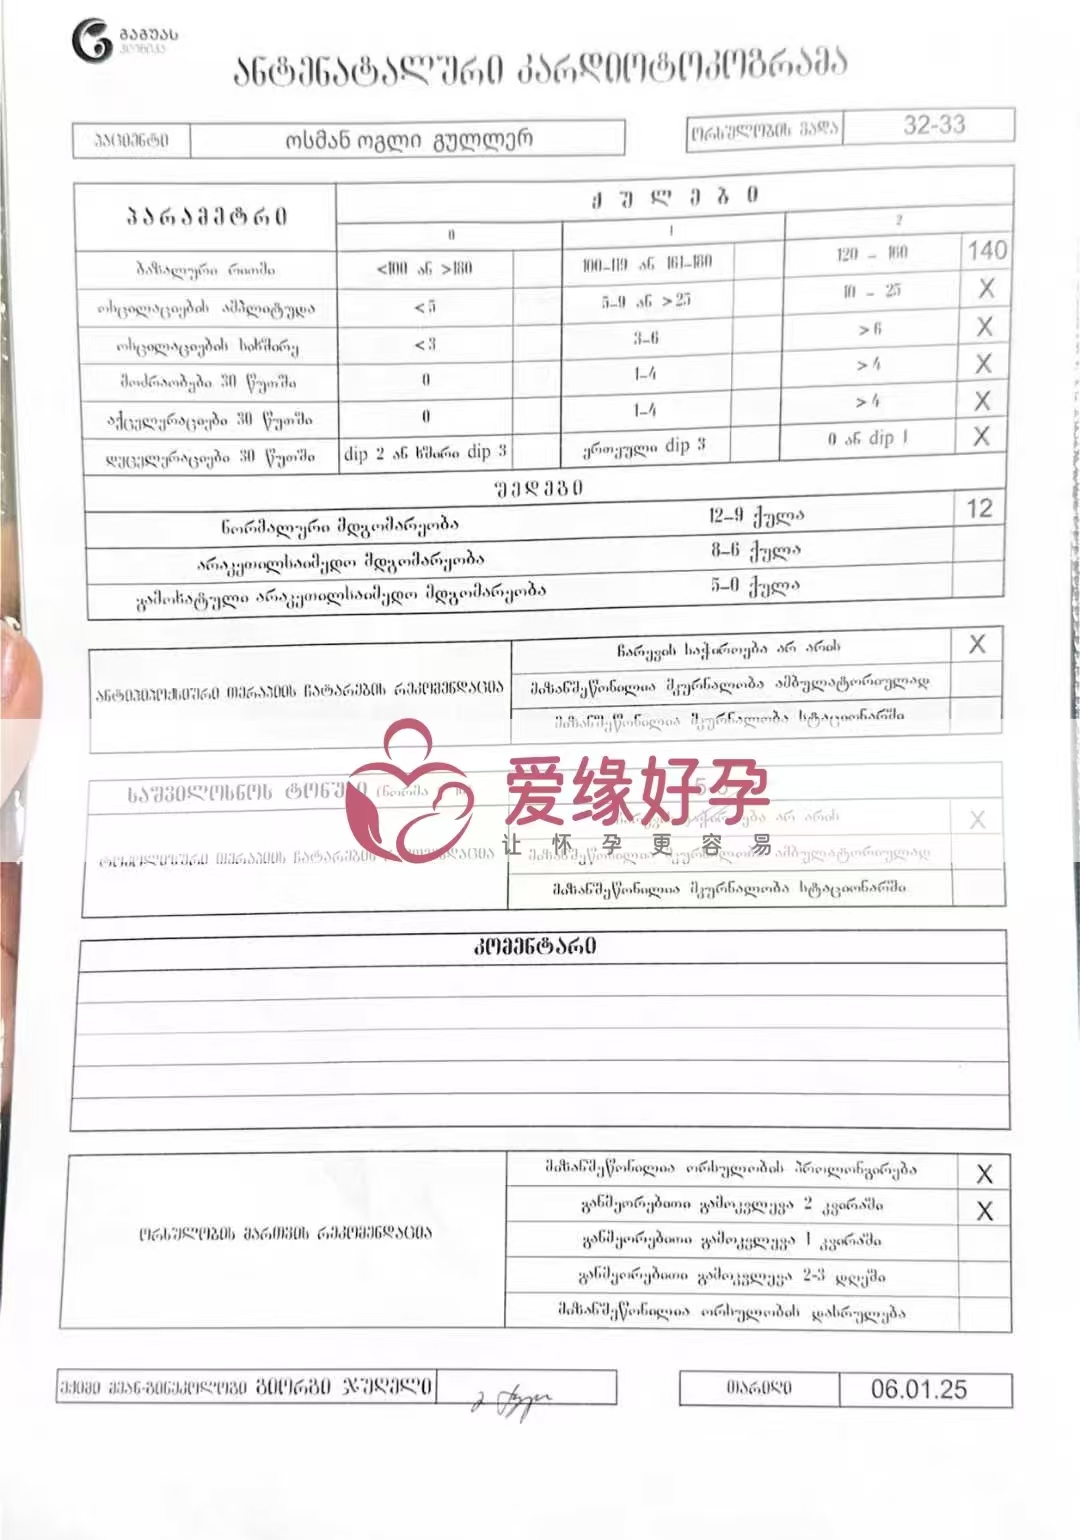 გაგუას
კლინიკა
ანტენატალური კარდიოტოკოგრამა
პაციენტი ოსმან ოგლი გულლერ ორსულობის ვადა 32-33
პარამეტრი ქულები
0 1 2
ბაზალური რითმი <100 ან >180 100-119 ან 161-180 120 - 160 140
ოსცილაციების ამპლიტუდა <5 5-9 ან >25 10 - 25 X
ოსცილაციების სიხშირე <3 3-6 >6 X
მოძრაობები 30 წუთში 0 1-4 >4 X
აქცელერაციები 30 წუთში 0 1-4 >4 X
დეცელერაციები 30 წუთში dip 2 ან ხშირი dip 3 ერთეული dip 3 0 ან dip 1 X
შედეგი
ნორმალური მდგომარეობა 12-9 ქულა 12
არაკეთილსაიმედო მდგომარეობა 8-6 ქულა
გამოხატული არაკეთილსაიმედო მდგომარეობა 5-0 ქულა
ანტიჰიპოქსიური თერაპიის ჩატარების რეკომენდაცია
ჩარევის საჭიროება არ არის X
მიზანშეწონილია მკურნალობა ამბულატორიულად
მიზანშეწონილია მკურნალობა სტაციონარში
საშვილოსნოს ტონუსი (ნორმა
爱缘好孕
让怀孕更容易
ჩარევის საჭიროება არ არის X
ტოკოლიზური თერაპიის ჩატარების რეკომენდაცია მიზანშეწონილია მკურნალობა ამბულატორიულად
მიზანშეწონილია მკურნალობა სტაციონარში
კომენტარი
ორსულობის მართვის რეკომენდაცია
მიზანშეწონილია ორსულობის პროლონგირება X
განმეორებითი გამოკვლევა 2 კვირაში X
განმეორებითი გამოკვლევა 1 კვირაში
განმეორებითი გამოკვლევა 2-3 დღეში
მიზანშეწონილია ორსულობის დასრულება
ექიმი მეან-გინეკოლოგი გიორგი ჯუღელი
თარიღი 06.01.25